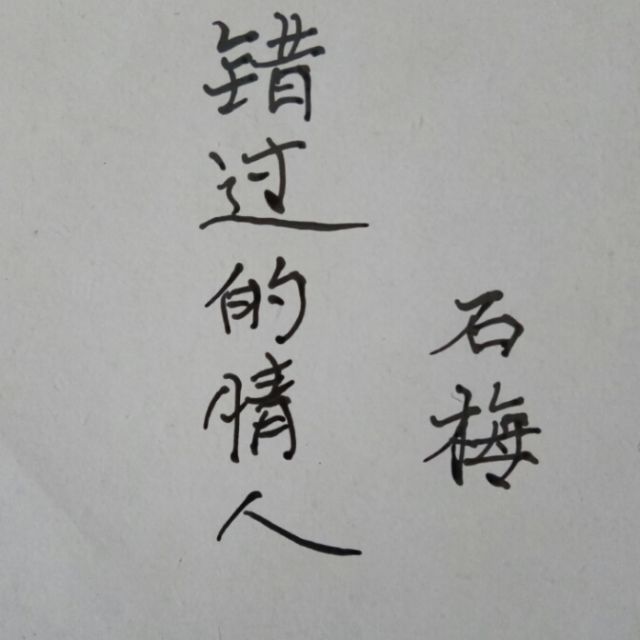 错过的情人
石梅